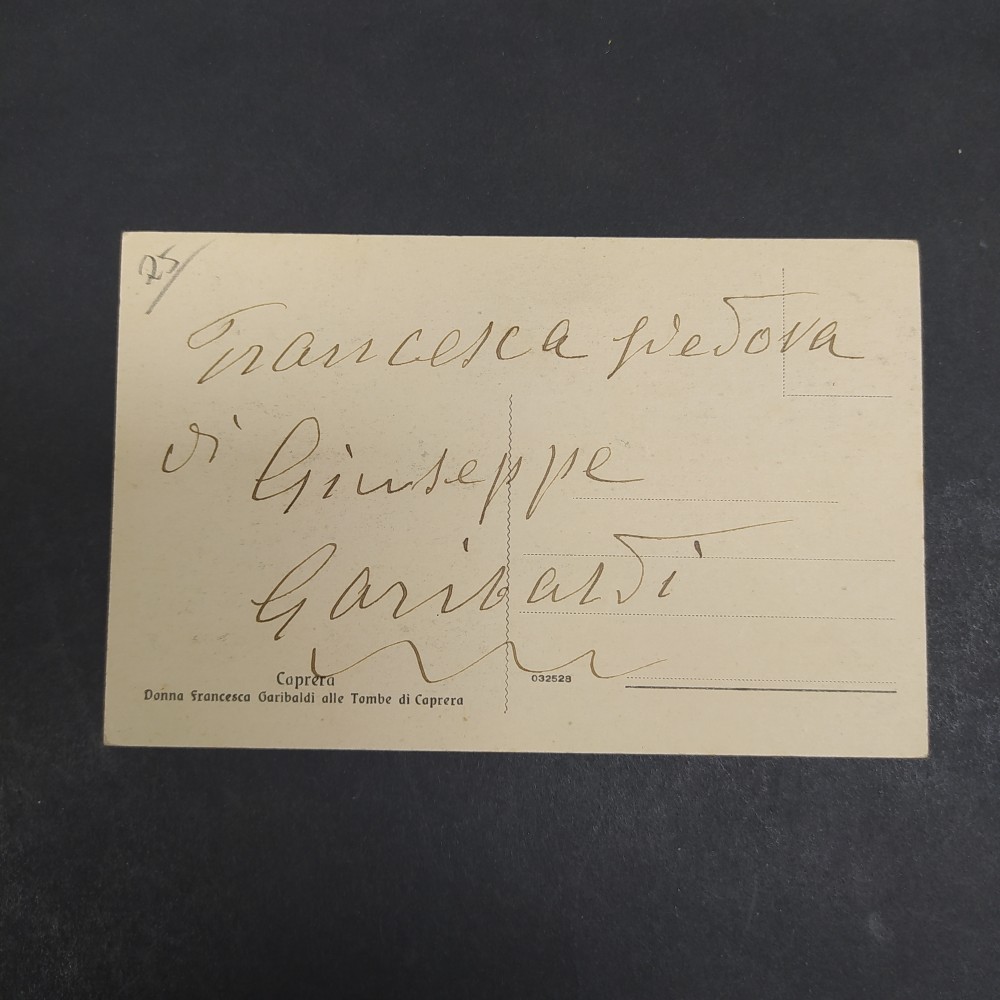 25
Francesca Vedova
di Giuseppe
Garibaldi
Caprera
Donna Francesca Garibaldi alle Tombe di Caprera
032528